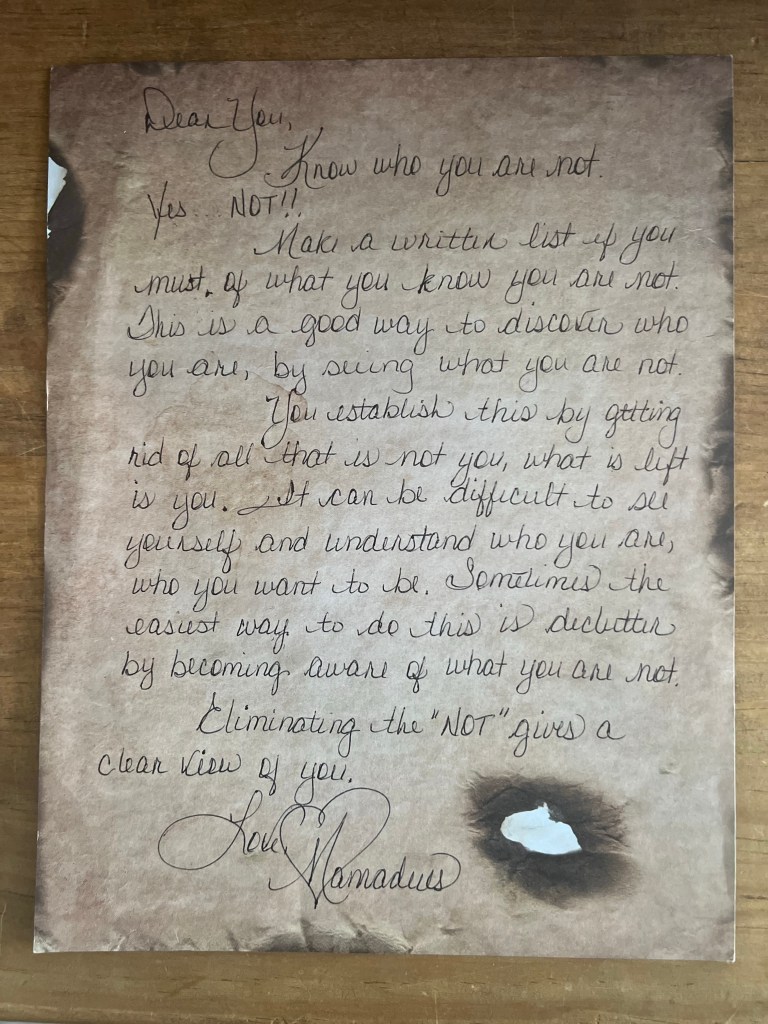 Dear You,
Know who you are not.
Yes... NOT!!
Make a written list if you
must, of what you know you are not.
This is a good way to discover who
you are, by seeing what you are not.
You establish this by getting
rid of all that is not you, what is left
is you. It can be difficult to see
yourself and understand who you are,
who you want to be. Sometimes the
easiest way to do this is declutter
by becoming aware of what you are not.
Eliminating the "NOT" gives a
clear view of you.
Love,